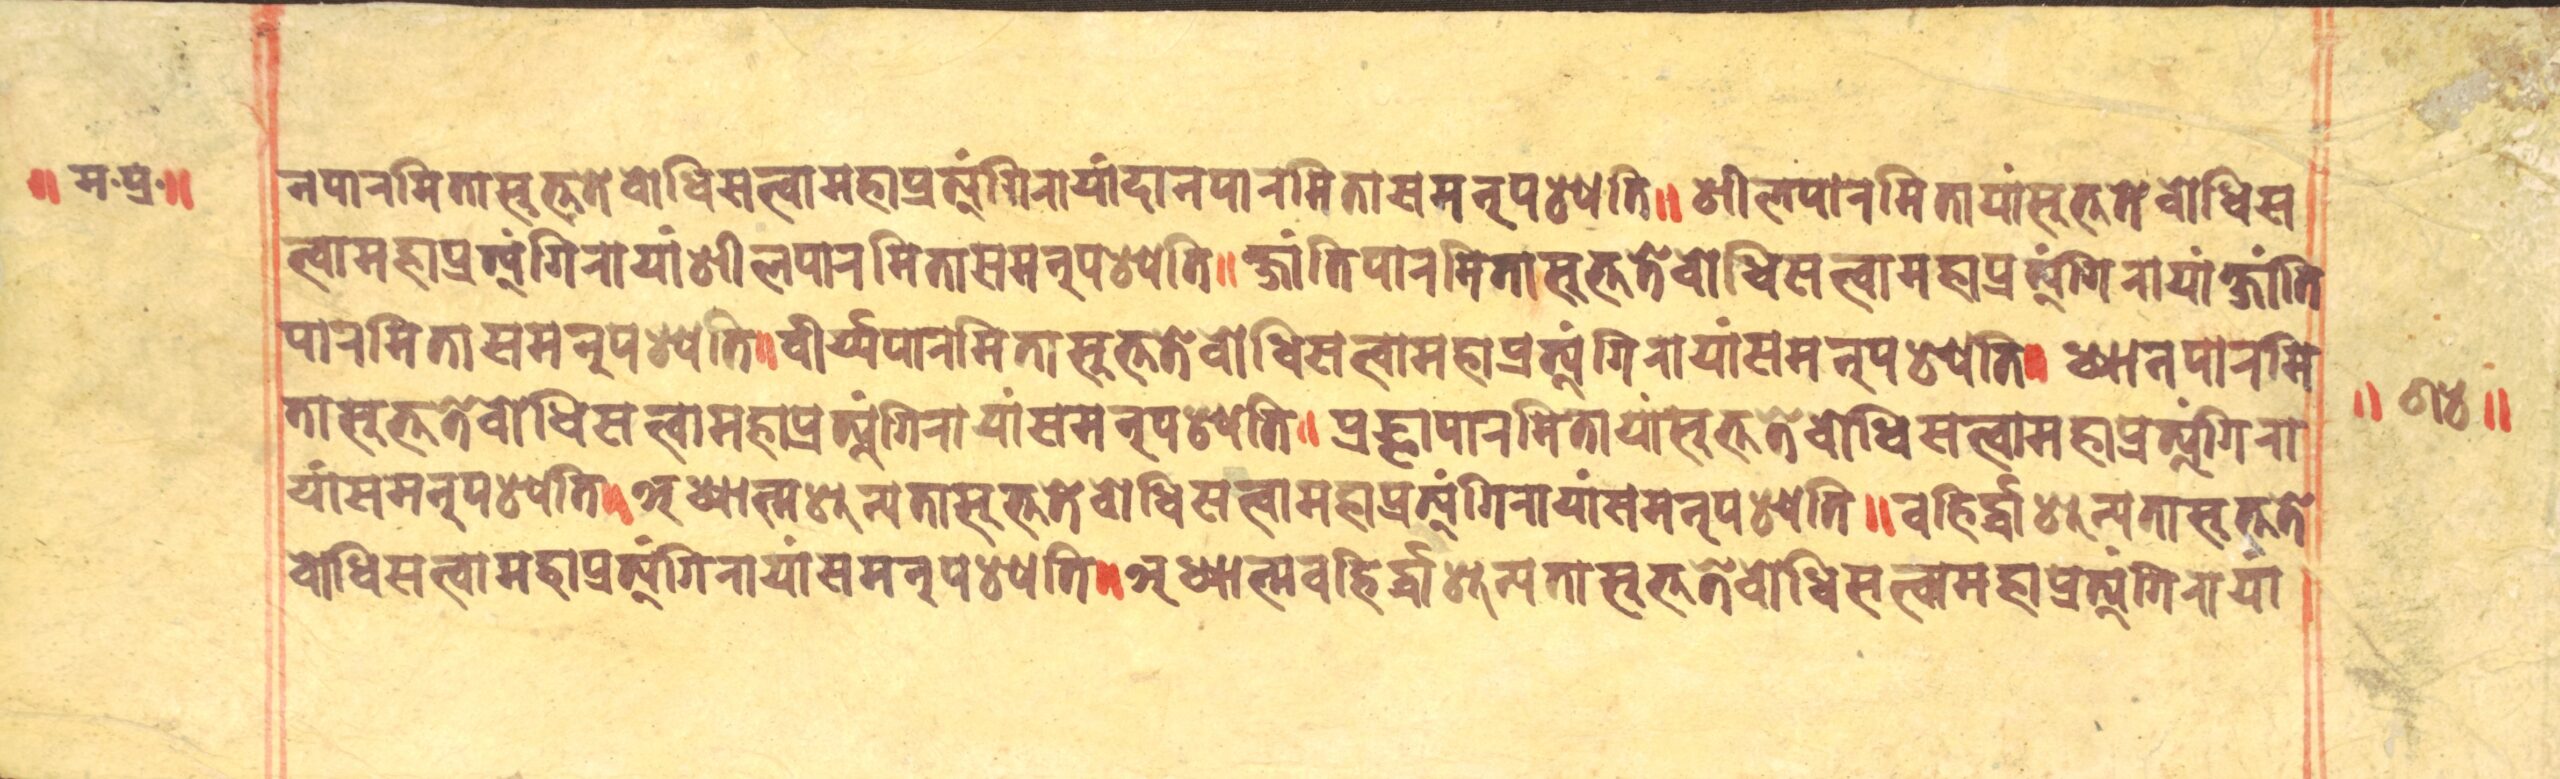 ॥ म॰प्र॰॥
नपारमितासूक्तते बोधिसत्वामहाप्रत्यंगिरायांदानपारमितासमनुपश्यति॥ शीलपारमितायांसूक्तते बोधिस
त्वामहाप्रत्यंगिरायांशीलपारमितासमनुपश्यति॥ क्षांतिपारमितासूक्तते बोधिसत्वामहाप्रत्यंगिरायांक्षांति
पारमितासमनुपश्यति॥ वीर्य्यपारमितासूक्तते बोधिसत्वामहाप्रत्यंगिरायांसमनुपश्यति॥ ध्यानपारमि
तासूक्तते बोधिसत्वामहाप्रत्यंगिरायांसमनुपश्यति॥ प्रज्ञापारमितायांसूक्तते बोधिसत्वामहाप्रत्यंगिरा
यांसमनुपश्यति॥ अध्यात्मशून्यतासूक्तते बोधिसत्वामहाप्रत्यंगिरायांसमनुपश्यति॥ वहिर्द्धाशून्यतासूक्तते
बोधिसत्वामहाप्रत्यंगिरायांसमनुपश्यति॥ अध्यात्मवहिर्द्धाशून्यतासूक्तते बोधिसत्वामहाप्रत्यंगिरायां